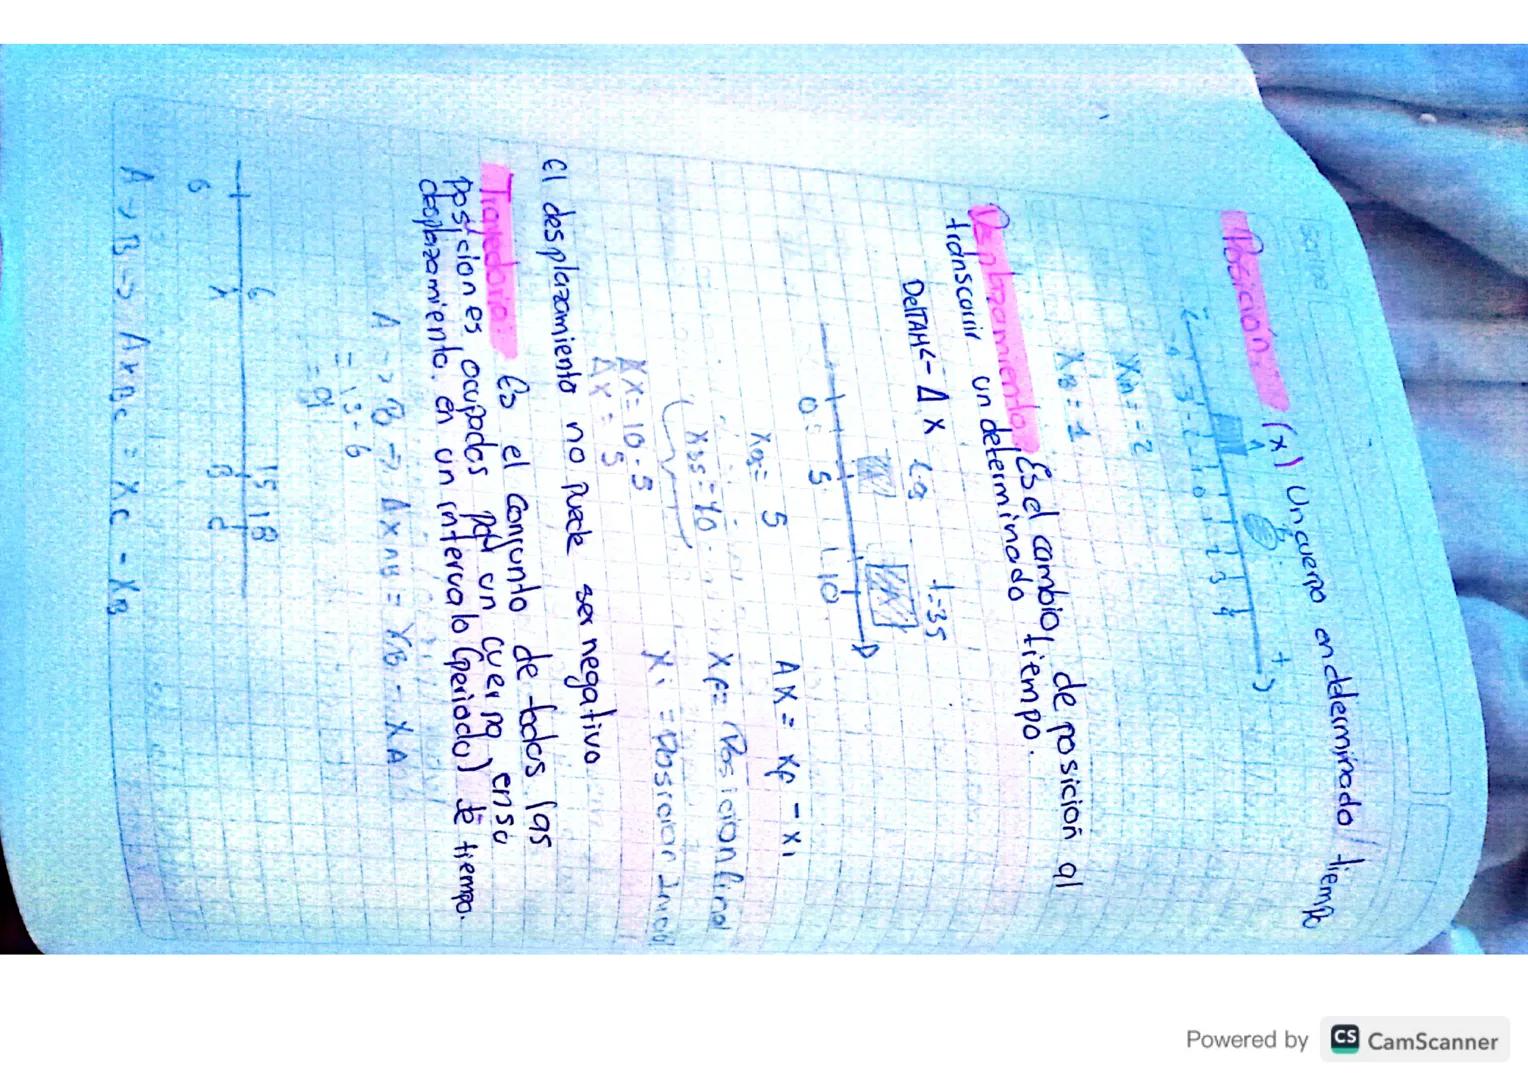 Posición: (x) Un cuerpo en determinado tiempo
A
-4 -3 -2 -1 0 1 2 3 4
+
XA = -2
XB = 1
Desplazamiento: Es el cambio, de posición al
transcurrir un determinado tiempo.
Δ X
t=3s
0 5 10
ΔX = XF - Xi
5
XF = Posicion final
Xi = Posicion Inicial
ΔX = 10 - 5
ΔX = 5
El desplazamiento no puede ser negativo
Trayectoria: Es el conjunto de todas las
posiciones ocupadas por un cuerpo, en su
desplazamiento. en un intervalo (periodo) de tiempo.
A -> B -> ΔXAB = XB - XA
= 15 - 6
= 9
6 15 18
A B C
A -> B -> ΔXBC = XC - XB
Powered by CS CamScanner